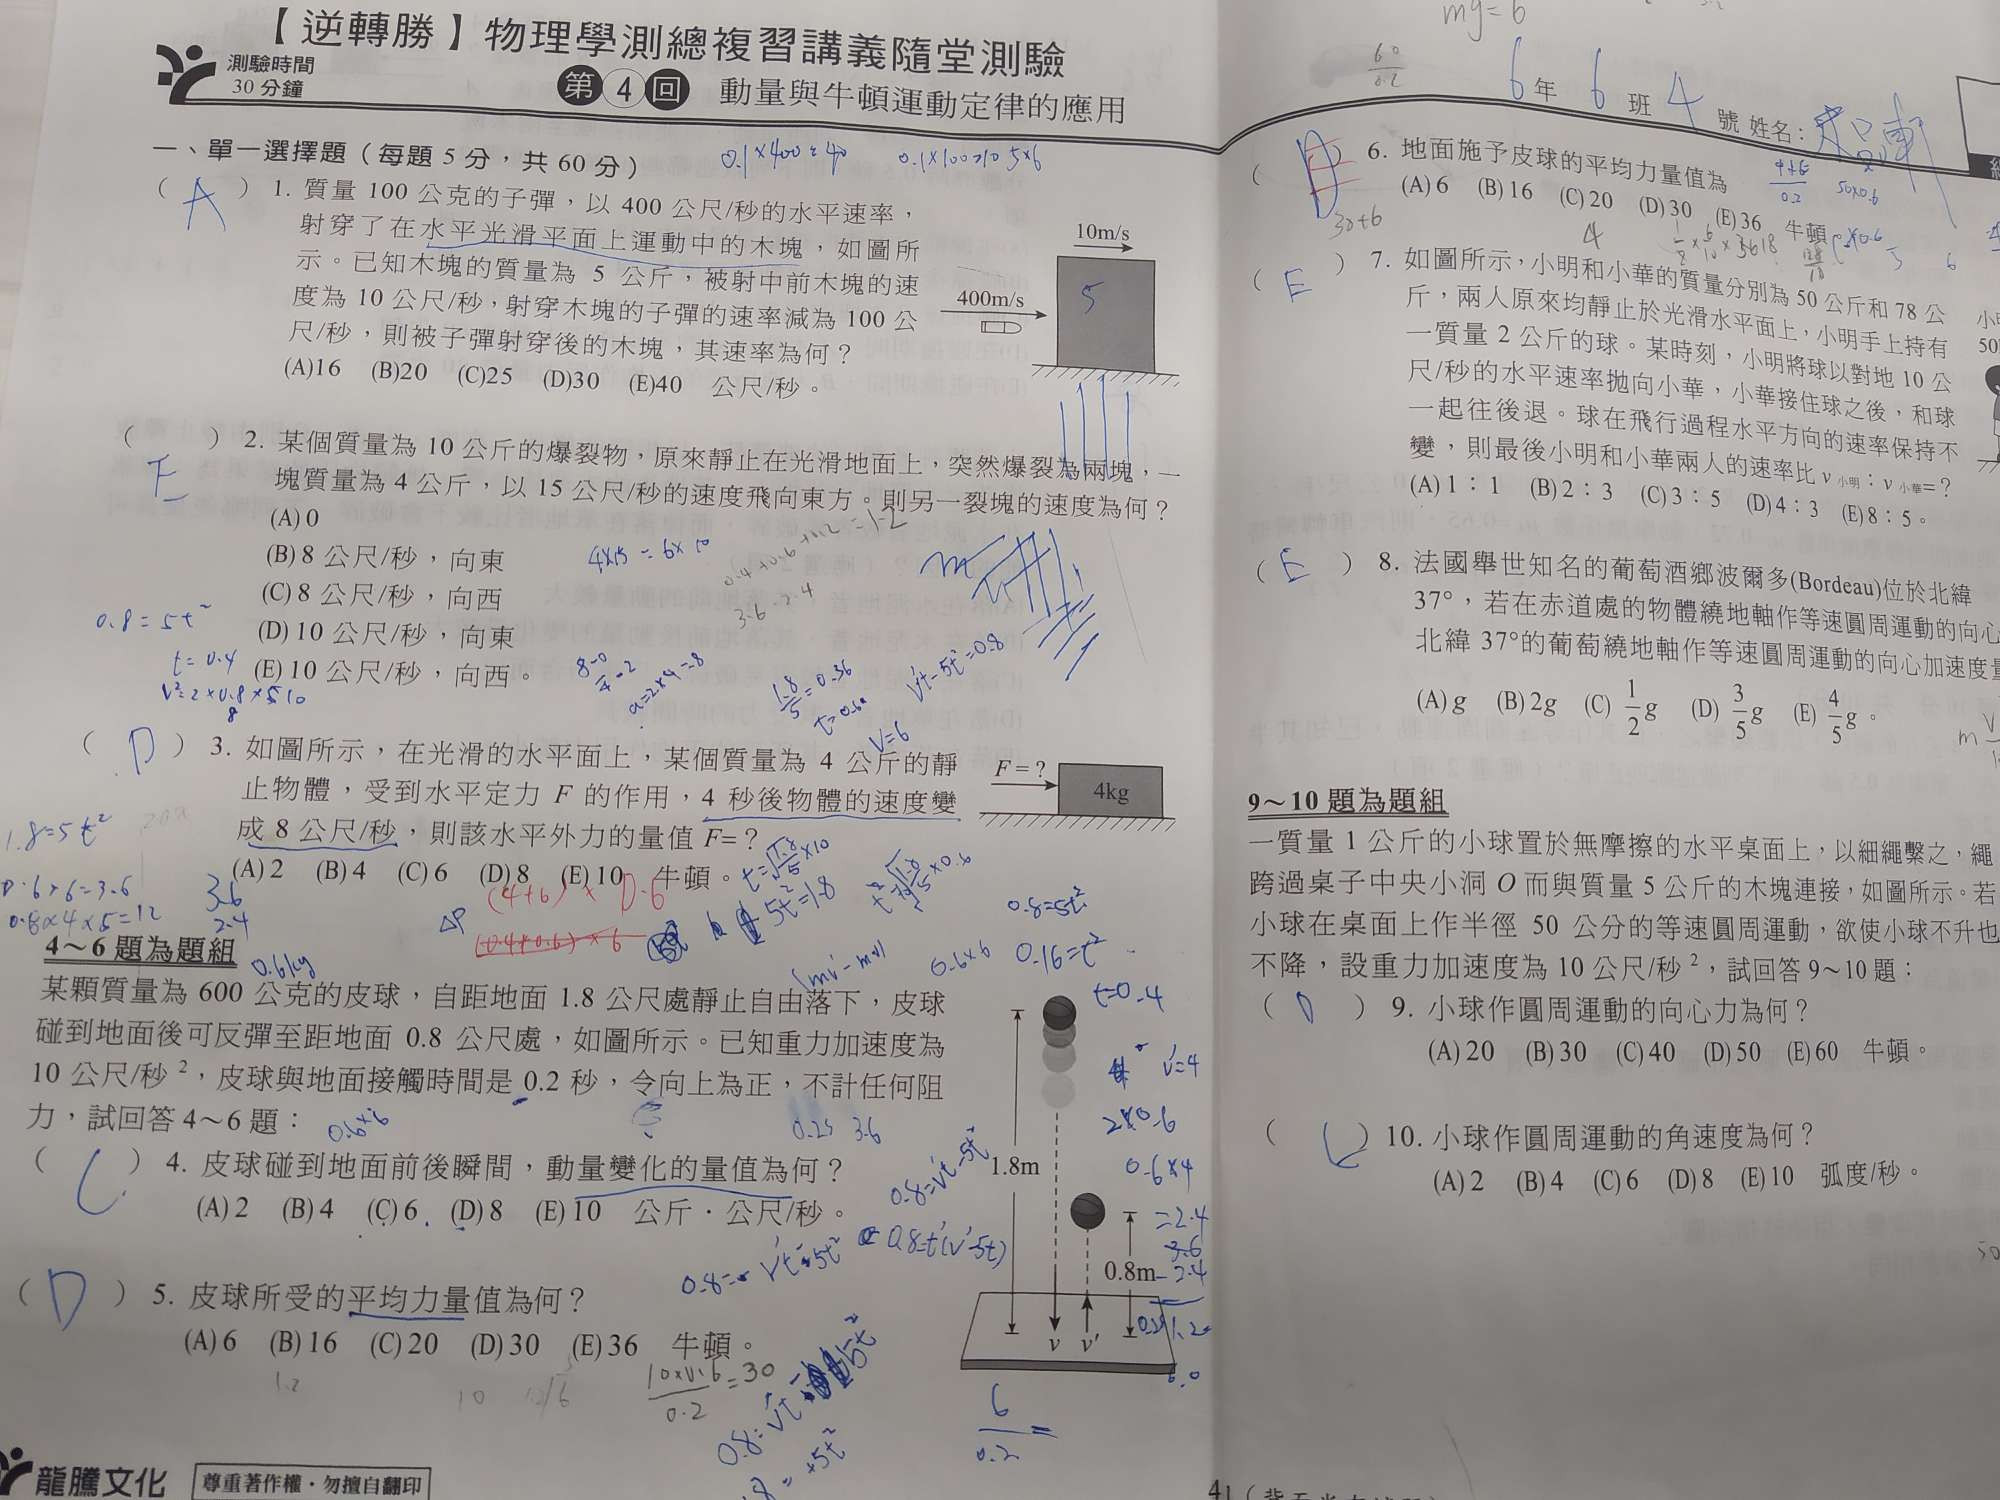 【逆轉勝】物理學測總複習講義隨堂測驗
測驗時間
30 分鐘
第 4 回 動量與牛頓運動定律的應用
一、單一選擇題(每題 5 分,共 60 分)
0.1×400=40
5×6
( A ) 1. 質量 100 公克的子彈,以 400 公尺/秒的水平速率,
射穿了在水平光滑平面上運動中的木塊,如圖所
示。已知木塊的質量為 5 公斤,被射中前木塊的速
度為 10 公尺/秒,射穿木塊的子彈的速率減為 100 公
尺/秒,則被子彈射穿後的木塊,其速率為何?
(A)16 (B)20 (C)25 (D)30 (E)40 公尺/秒。
10m/s
400m/s
5
( E ) 2. 某個質量為 10 公斤的爆裂物,原來靜止在光滑地面上,突然爆裂為兩塊,一
塊質量為 4 公斤,以 15 公尺/秒的速度飛向東方。則另一裂塊的速度為何?
(A) 0
(B) 8 公尺/秒,向東
(C) 8 公尺/秒,向西
(D) 10 公尺/秒,向東
(E) 10 公尺/秒,向西。
4×15 = 6×10
0.8 = 5t²
t = 0.4
v=6
( D ) 3. 如圖所示,在光滑的水平面上,某個質量為 4 公斤的靜
止物體,受到水平定力 F 的作用,4 秒後物體的速度變
成 8 公尺/秒,則該水平外力的量值 F=?
(A) 2 (B) 4 (C) 6 (D) 8 (E) 10 牛頓。
F = ?
4kg
1.8=5t²
0.6×6=3.6
0.8×4×5=12
3.6
2.4
ΔP
(4+6) × 0.6
5t²=1.8
0.8=5t²
0.16=t²
t=0.4
0.6×6
4~6 題為題組
0.6kg
某顆質量為 600 公克的皮球,自距地面 1.8 公尺處靜止自由落下,皮球
碰到地面後可反彈至距地面 0.8 公尺處,如圖所示。已知重力加速度為
10 公尺/秒²,皮球與地面接觸時間是 0.2 秒,令向上為正,不計任何阻
力,試回答 4~6 題:
0.6×6
3.6
( C ) 4. 皮球碰到地面前後瞬間,動量變化的量值為何?
(A) 2 (B) 4 (C) 6 (D) 8 (E) 10 公斤.公尺/秒。
1.8m
0.8m
v v'
v'=4
0.6×4
=2.4
3.6
2.4
0.8=v't-5t²
0.8=t(v'-5t)
( D ) 5. 皮球所受的平均力量值為何?
(A) 6 (B) 16 (C) 20 (D) 30 (E) 36 牛頓。
10×0.6/0.2=30
6/0.2 =
龍騰文化
尊重著作權.勿擅自翻印
mg=6
60/0.2
6 年 6 班 4 號 姓名:
( D ) 6. 地面施予皮球的平均力量值為
(A) 6 (B) 16 (C) 20 (D) 30 (E) 36 牛頓
30+6
50×0.6
( E ) 7. 如圖所示,小明和小華的質量分別為 50 公斤和 78 公
斤,兩人原來均靜止於光滑水平面上,小明手上持有
一質量 2 公斤的球。某時刻,小明將球以對地 10 公
尺/秒的水平速率拋向小華,小華接住球之後,和球
一起往後退。球在飛行過程水平方向的速率保持不
變,則最後小明和小華兩人的速率比 v小明:v小華=?
(A) 1:1 (B) 2:3 (C) 3:5 (D) 4:3 (E) 8:5。
( E ) 8. 法國舉世知名的葡萄酒鄉波爾多(Bordeau)位於北緯
37°,若在赤道處的物體繞地軸作等速圓周運動的向心
北緯 37°的葡萄繞地軸作等速圓周運動的向心加速度量
(A) g (B) 2g (C) 1/2 g (D) 3/5 g (E) 4/5 g。
9~10 題為題組
一質量 1 公斤的小球置於無摩擦的水平桌面上,以細繩繫之,繩
跨過桌子中央小洞 O 而與質量 5 公斤的木塊連接,如圖所示。若
小球在桌面上作半徑 50 公分的等速圓周運動,欲使小球不升也
不降,設重力加速度為 10 公尺/秒²,試回答 9~10 題:
( D ) 9. 小球作圓周運動的向心力為何?
(A) 20 (B) 30 (C) 40 (D) 50 (E) 60 牛頓。
( ) 10. 小球作圓周運動的角速度為何?
(A) 2 (B) 4 (C) 6 (D) 8 (E) 10 弧度/秒。